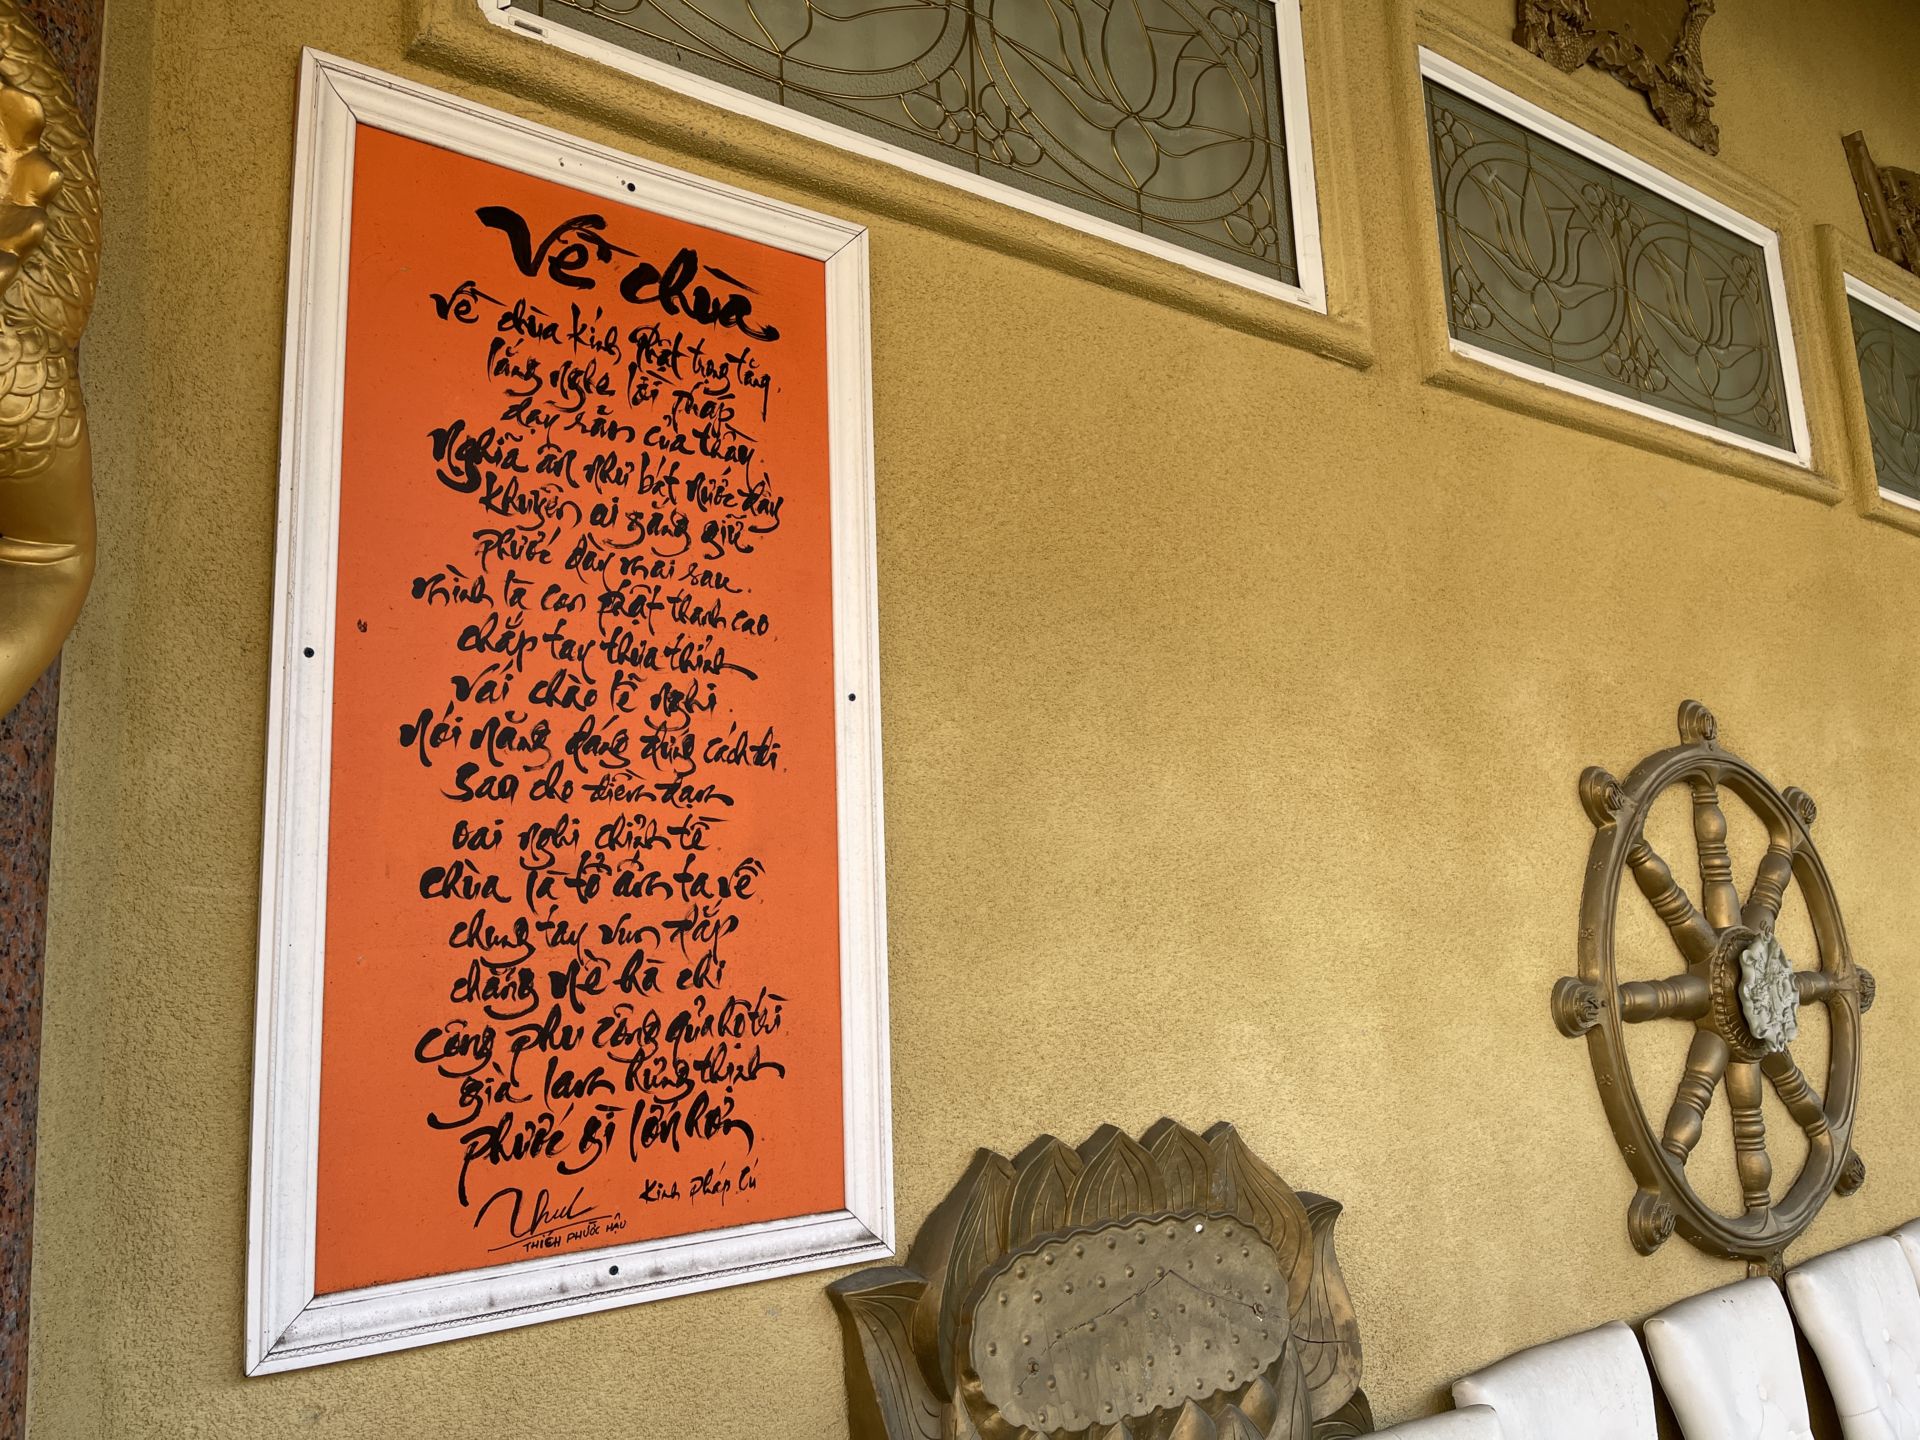 Về chùa
Về chùa kính Phật trọng tăng
lắng nghe lời Pháp
dạy răn của thầy
Nghĩa ân như bát nước đầy
khuyên ai gắng giữ
phước dày mai sau
mình là con phật thanh cao
chắp tay thưa thỉnh
vái chào lễ nghi
nói năng dáng đứng cách đi
sao cho điềm đạm
oai nghi chỉnh tề
chùa là tổ ấm ta về
chung tay vun đắp
chẳng nề hà chi
công phu công quả hộ thì
già lam hưng thịnh
phước gì lớn hơn
Kinh Pháp Cú
THÍCH PHƯỚC HẬU